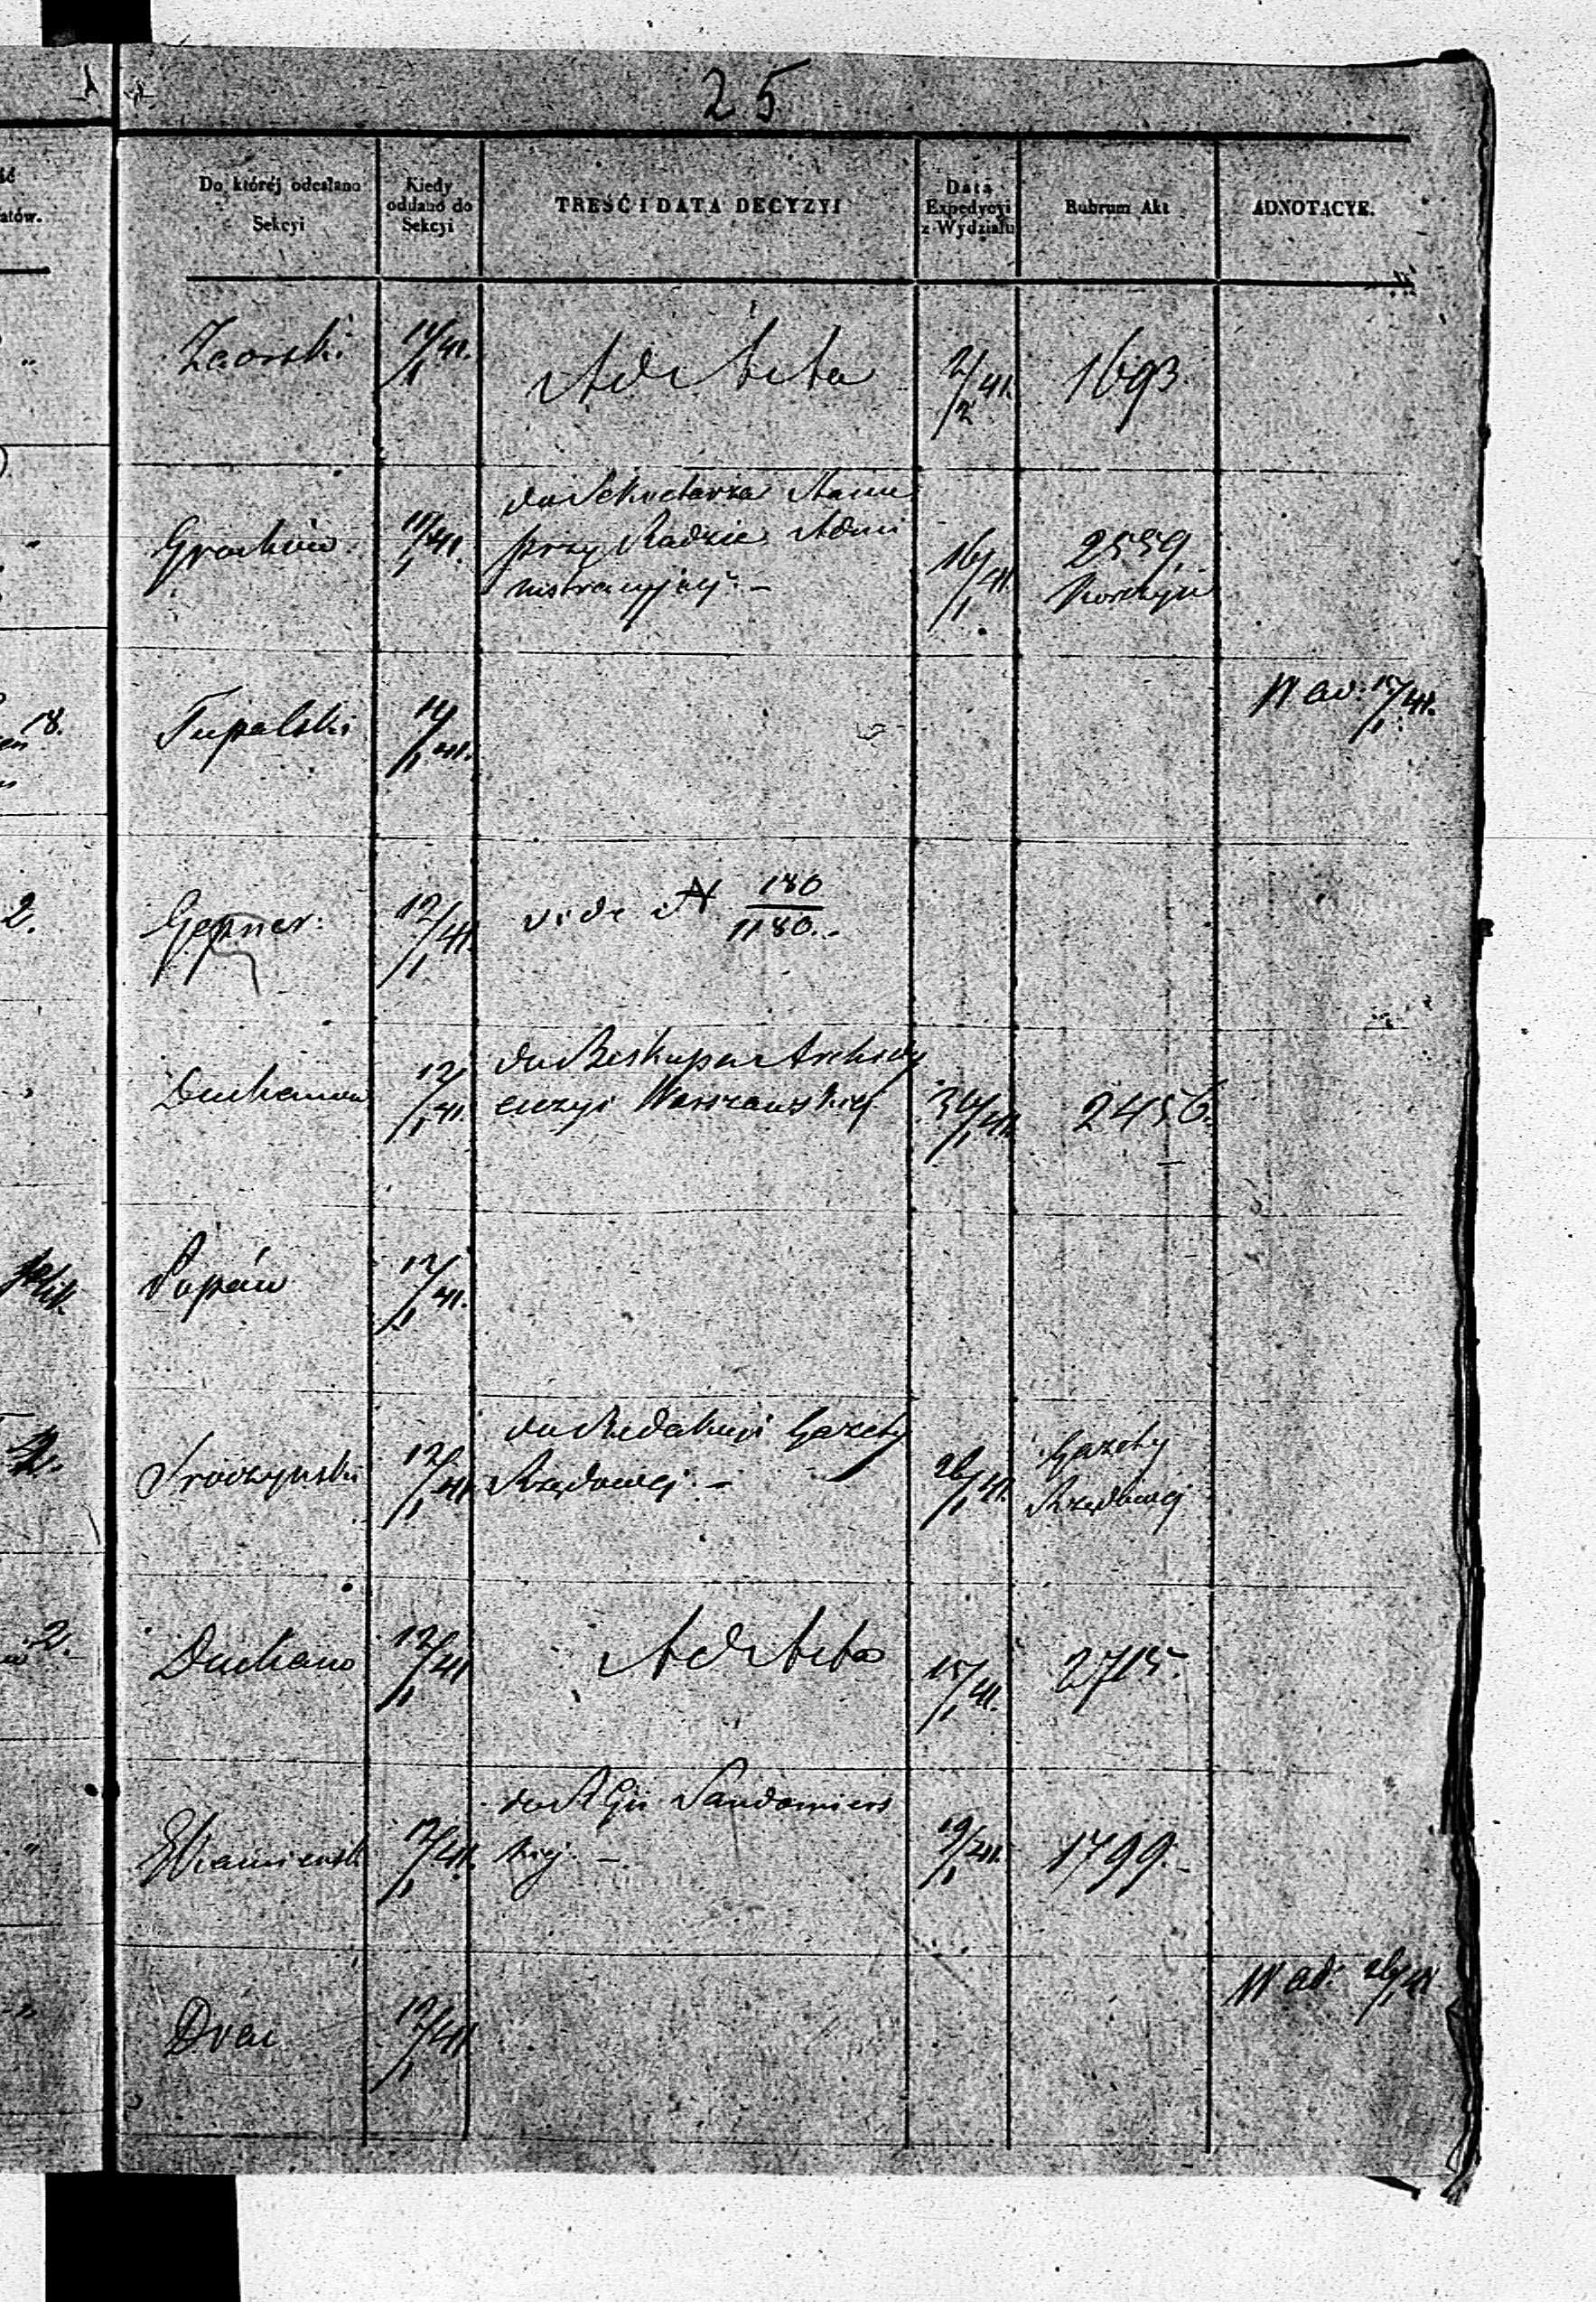 25
Do któréj odesłano
Sekcyi
Kiedy
oddano do
Sekcyi
TREŚĆ I DATA DECYZYI
Data
Expedycyi
z Wydziału
Rubrum Akt
ADNOTACYE.
Zaorski 11/1 41. Ad Acta 2/2 41. 1693
do Sekretarza Stanu
Grochów 11/1 41. przy Radzie Admi 16/1 41. 2559
nistracyjnej. –
Tupalski 14/1 41. 15/1 41.
Gepner. 12/1 41. vide N 180/1180.
do Biskupa Archidy
12/1 41. ecezyi Warszawskiej 30/1 41. 2456.
Popów 12/1 41.
do Redakcyi Gazety Gazety
Sroczyński 12/1 41. Rządowej. – 26/1 41. Rządowej
Duchano 12/1 41 Ad Acta 15/1 41. 2715.
do RGu Sandomiers
12/1 41. kiej. – 19/1 41. 1799.
26/1 41
Drac 12/1 41